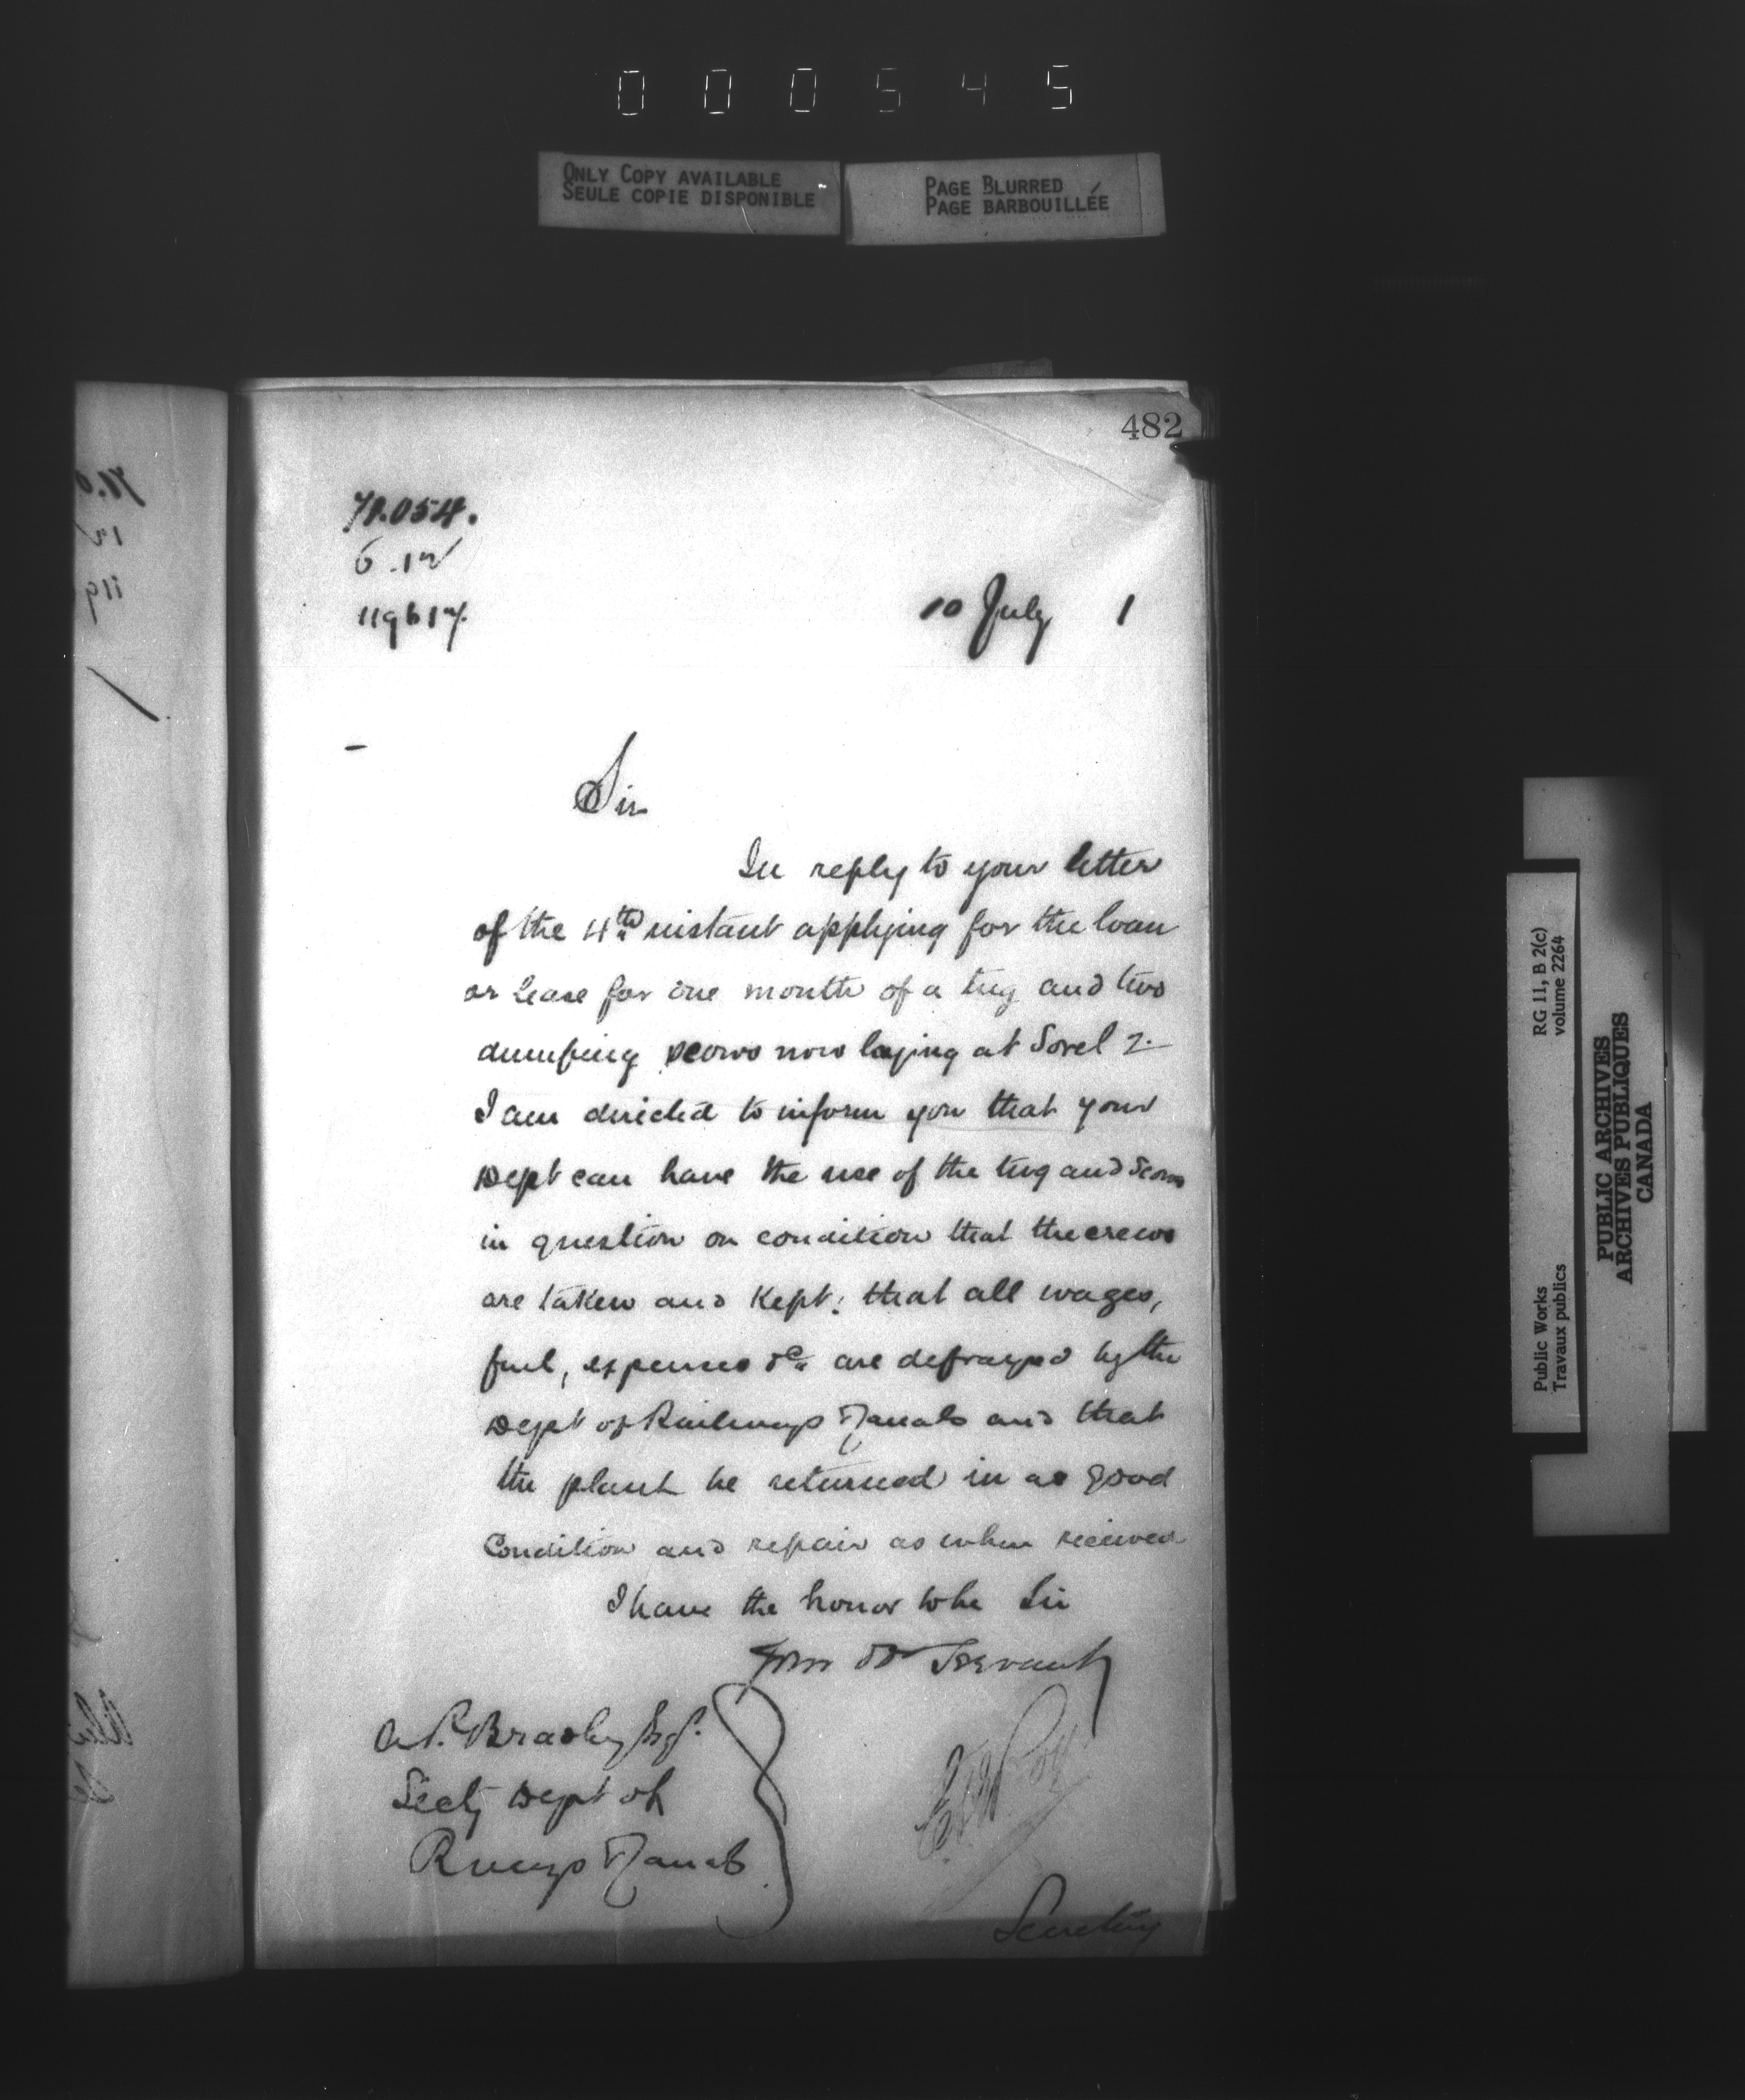 000545
ONLY COPY AVAILABLE
SEULE COPIE DISPONIBLE
PAGE BLURRED
PAGE BARBOUILLÉE
482
71.054.
119617.
10 July 1
Sir
In reply to your letter
of the 4th instant applying for the loan
or lease for one month of a tug and two
dumping scows now laying at Sorel
I am directed to inform you that your
Dept can have the use of the tug and Scows
in question on condition that the crews
are taken and Kept; that all wages,
fuel, expenses &c are defrayed by the
Dept of Railways & Canals and that
the plant be returned in as good
Condition and repair as when received
I have the honor to be Sir
Your Ob Servant
A.P. Bradley Esq.
Secty Dept of
Rways & Canals
Secretary
RG 11, B 2(c)
volume 2264
Public Works
Travaux publics
PUBLIC ARCHIVES
ARCHIVES PUBLIQUES
CANADA